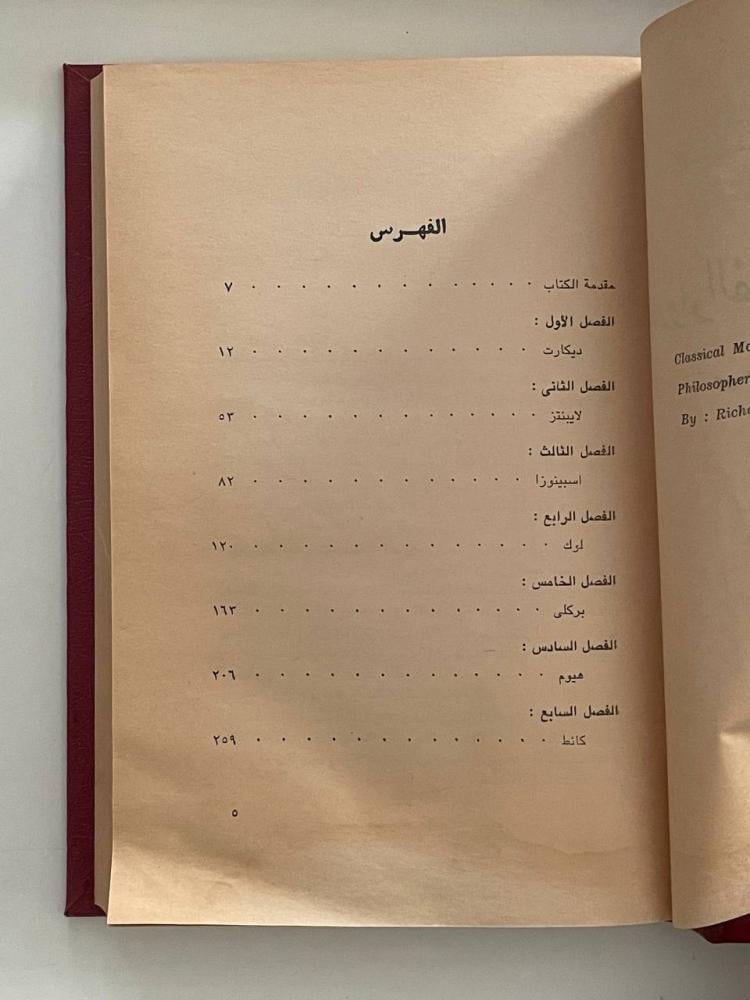 الفهرس
مقدمة الكتاب . . . . . . . . . . . . . ٧
الفصل الأول :
ديكارت . . . . . . . . . . . . ١٢
الفصل الثانى :
لايبنتز . . . . . . . . . . . . . ٥٣
الفصل الثالث :
اسبينوزا . . . . . . . . . . . . ٨٢
الفصل الرابع :
لوك . . . . . . . . . . . . . ١٢٠
الفصل الخامس :
بركلى . . . . . . . . . . . . . ١٦٣
الفصل السادس :
هيوم . . . . . . . . . . . . . ٢٠٦
الفصل السابع :
كانط . . . . . . . . . . . . . ٢٥٩
٥
Classical
Philosopher
By :